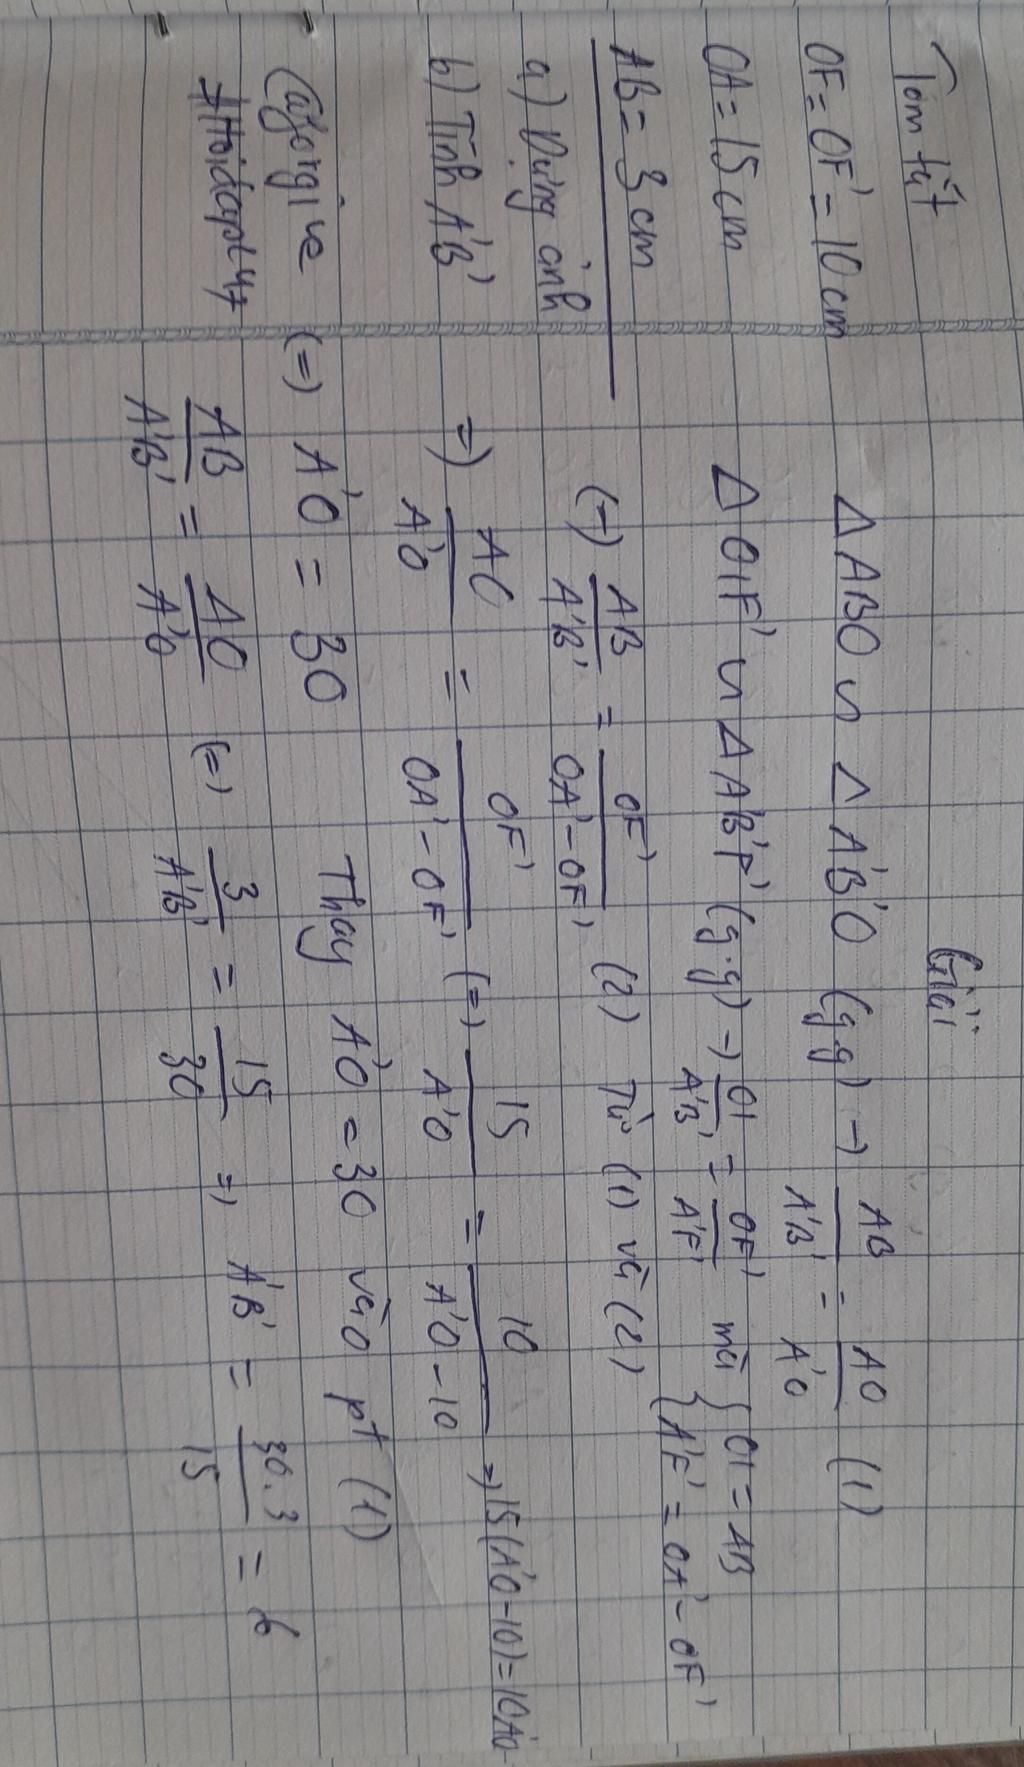 Tóm tắt
OF = OF' = 10 cm
OA = 15 cm
AB = 3 cm
a) Dựng ảnh
b) Tính A'B'
Giải
Δ ABO ∽ Δ A'B'O (g.g) → AB/A'B' = AO/A'O (1)
Δ OIF' ∽ Δ A'B'F' (g.g) → OI/A'B' = OF'/A'F' mà { OI = AB { A'F' = OA' - OF'
(=) AB/A'B' = OF'/OA' - OF' (2) Từ (1) và (2)
=) AO/A'O = OF'/OA' - OF' (=) 15/A'O = 10/A'O - 10 => 15(A'O - 10) = 10A'O
(=) A'O = 30 Thay A'O = 30 vào pt (1)
AB/A'B' = AO/A'O (=) 3/A'B' = 15/30 => A'B' = 30.3/15 = 6
#Hoidap247